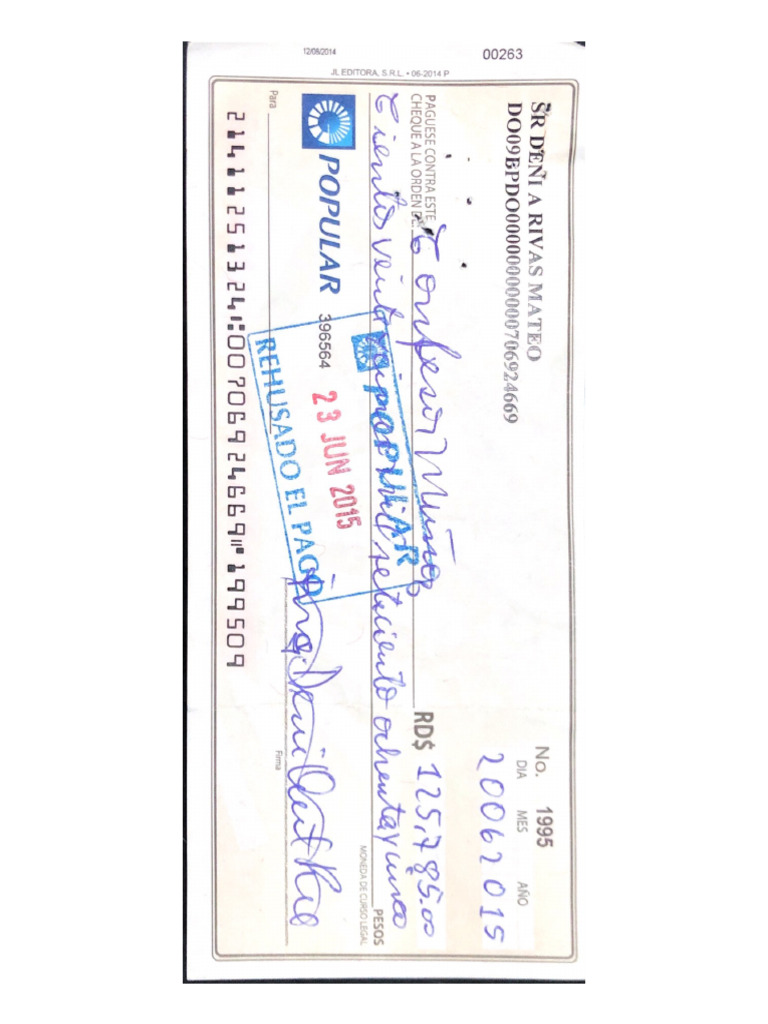 12/06/2014
00263
JL EDITORA, S.R.L. • 06-2014 P
SR DENI A RIVAS MATEO
DO09BPDO00000000000706924669
No. 1995
DIA MES AÑO
20 06 2015
PAGUESE CONTRA ESTE
CHEQUE A LA ORDEN DE
Confesor Muñoz
RD$ 125,785.00
Cientos veinti cinco mil seteciento ochenta y cinco
PESOS
MONEDA DE CURSO LEGAL
POPULAR
396564
POPULAR
23 JUN 2015
REHUSADO EL PAGO
Para
Firma
214111251324⑆00706924669⑈199509